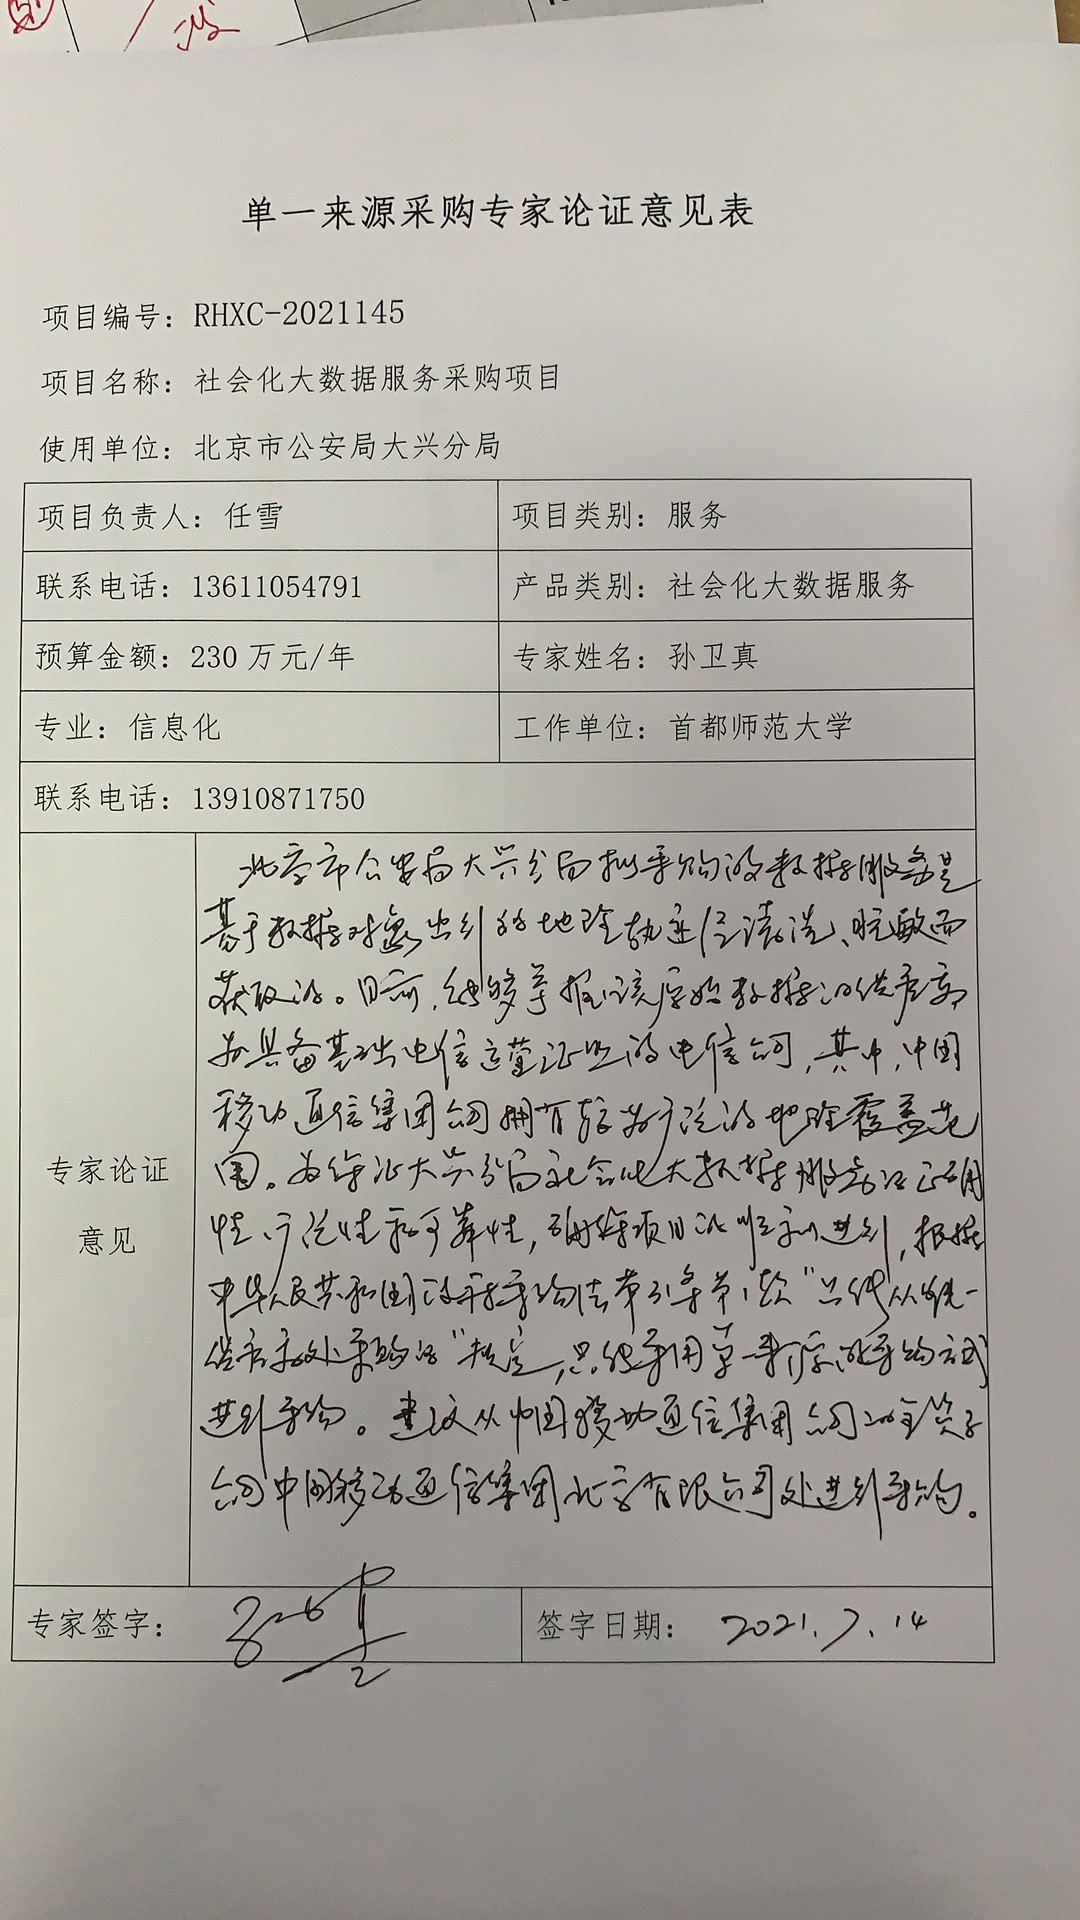 单一来源采购专家论证意见表
项目编号：RHXC-2021145
项目名称：社会化大数据服务采购项目
使用单位：北京市公安局大兴分局
项目负责人：任雪
项目类别：服务
联系电话：13611054791
产品类别：社会化大数据服务
预算金额：230万元/年
专家姓名：孙卫真
专业：信息化
工作单位：首都师范大学
联系电话：13910871750
专家论证
意见
北京市公安局大兴分局拟采购的数据服务是
基于数据对象出行的地理轨迹经清洗、脱敏而
获取的。目前，能够掌握该原始数据的供应商
为具备基础电信运营证照的电信公司，其中，中国
移动通信集团公司拥有较为广泛的地理覆盖范
围。为保证大兴分局社会化大数据服务的正确
性、广泛性和可靠性，确保项目的顺利进行，根据
中华人民共和国政府采购法第31条第1款"只能从唯一
供应商处采购的"规定，只能采用单一来源的采购方式
进行采购。建议从中国移动通信集团公司的全资子
公司中国移动通信集团北京有限公司处进行采购。
专家签字：
孙卫真
签字日期：
2021.7.14